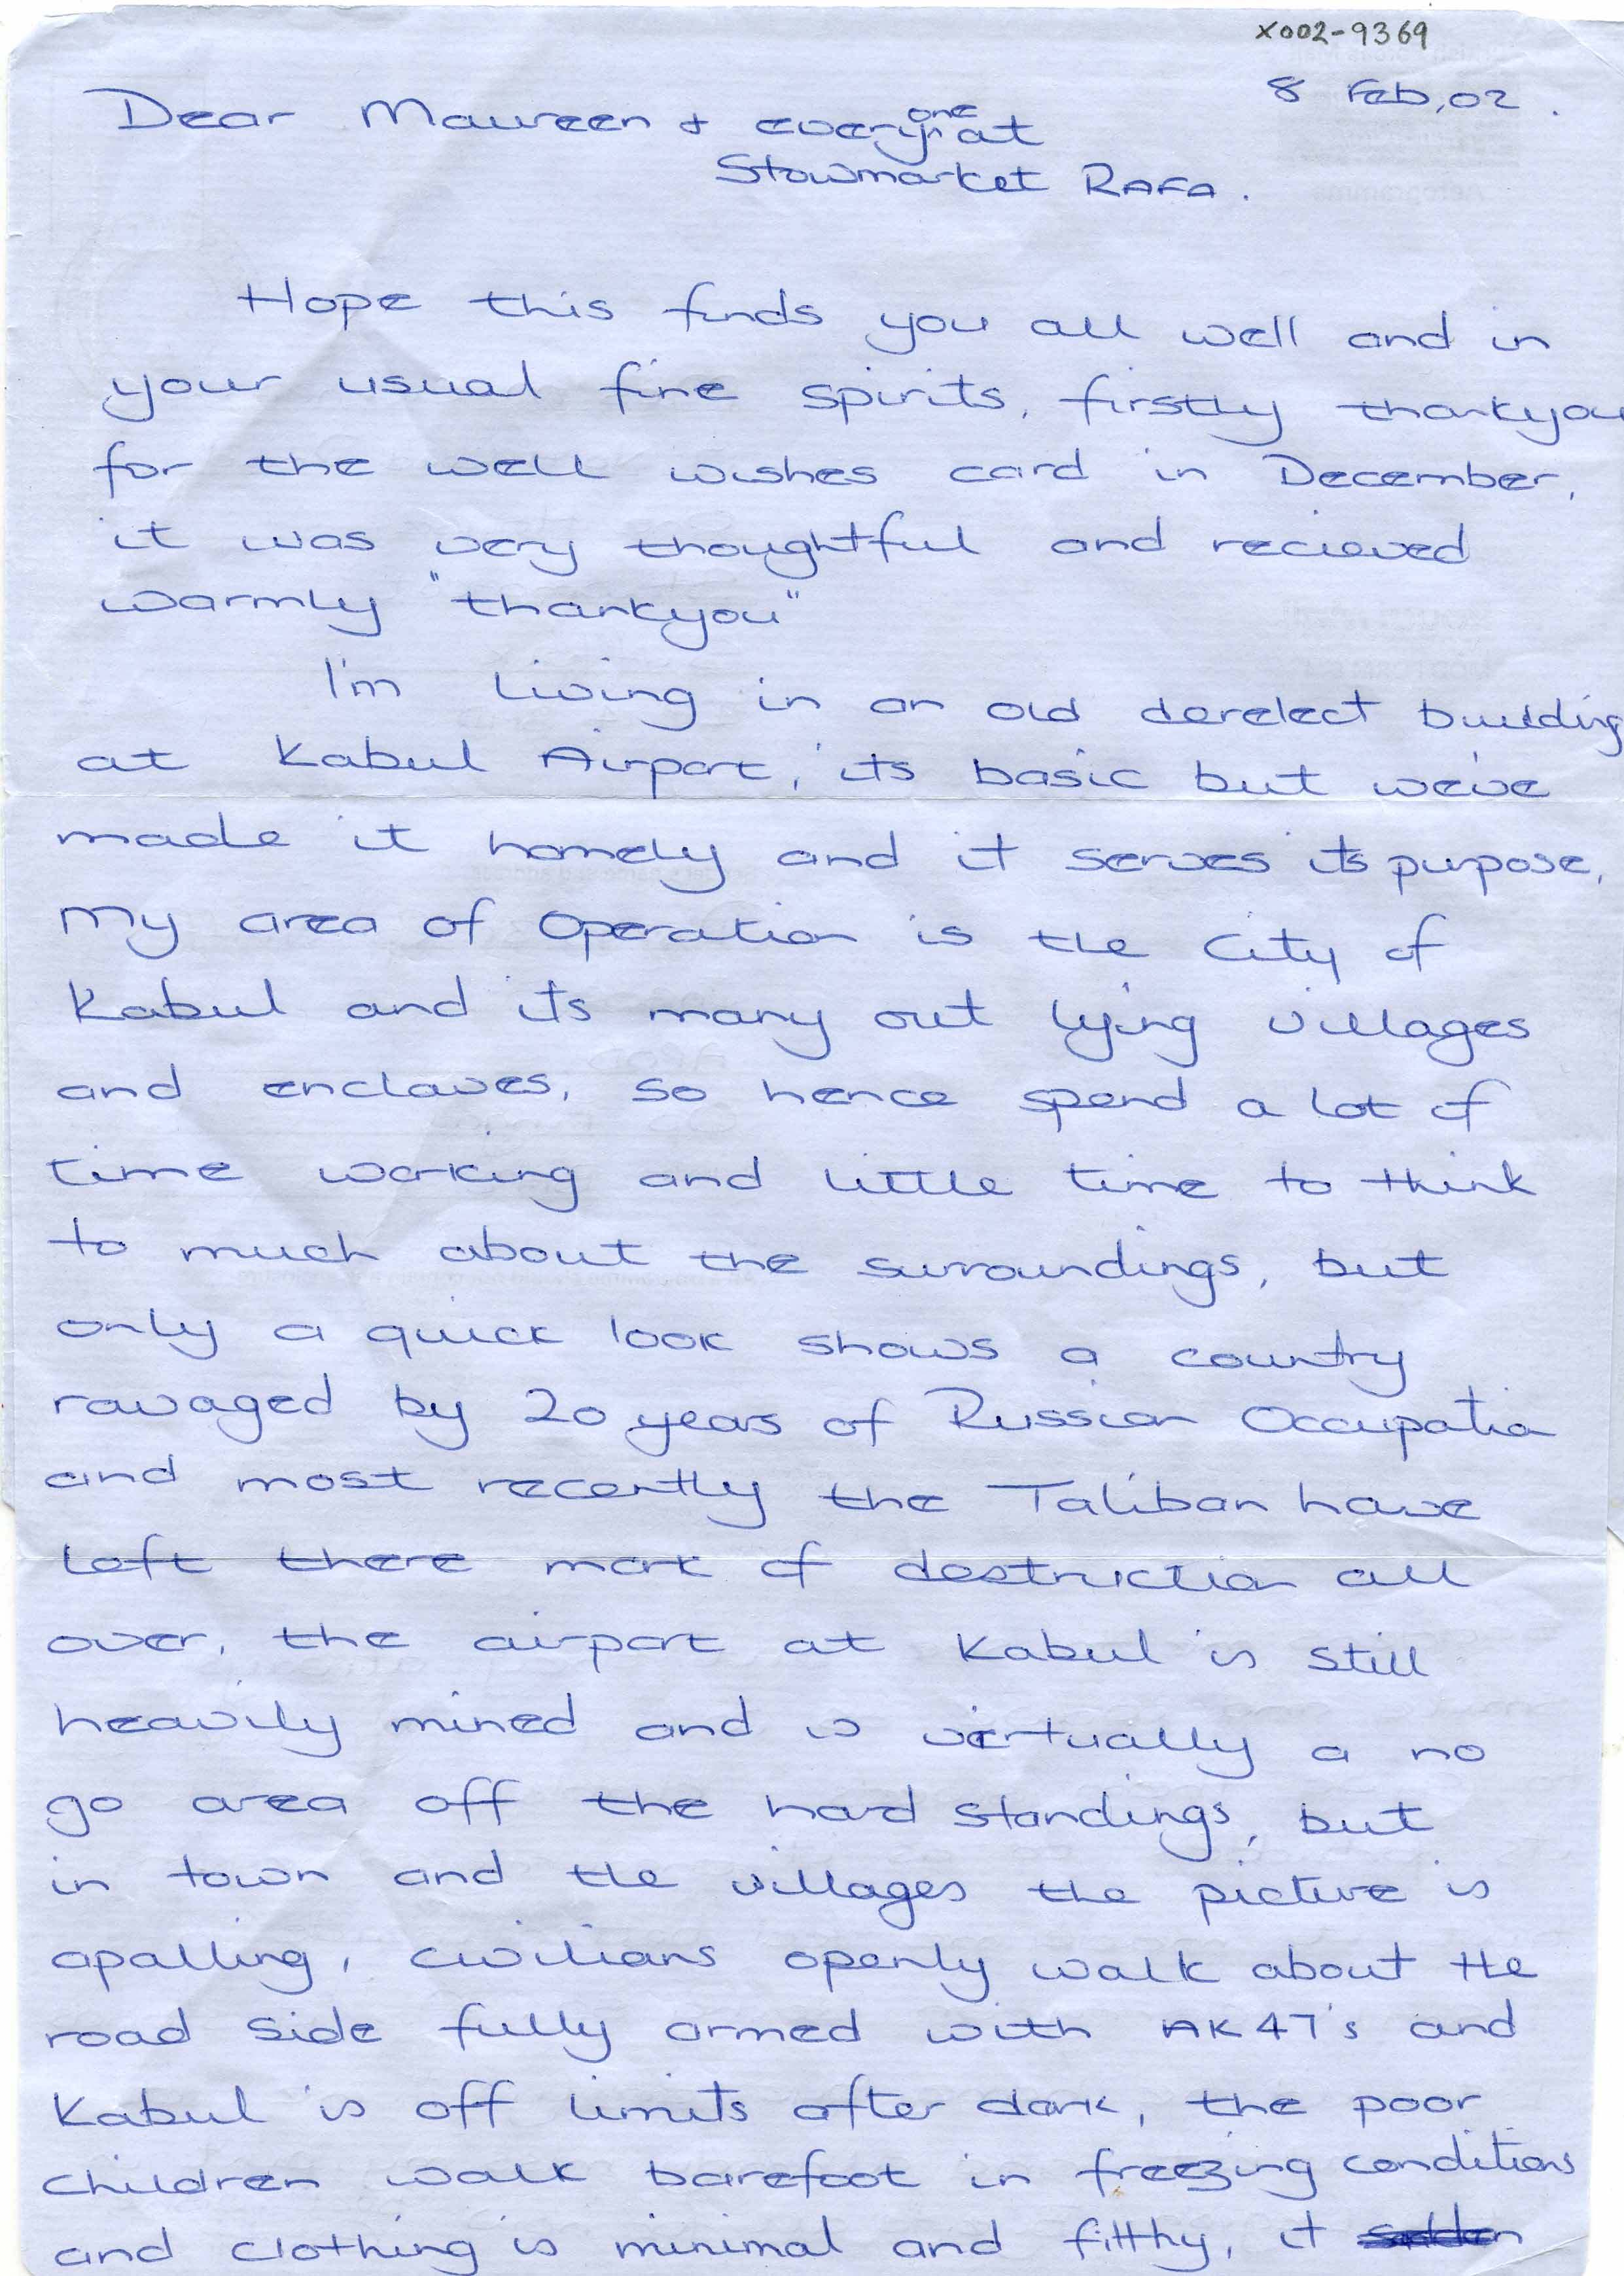 X002-9369
8 Feb, 02.
Dear Maureen + everyone at
Stowmarket RAFA.
Hope this finds you all well and in
your usual fine spirits, firstly thankyou
for the well wishes card in December,
it was very thoughtful and recieved
warmly "thankyou"
I'm living in an old derelect building
at Kabul Airport, its basic but weive
made it homely and it serves its purpose,
my area of Operation is the City of
Kabul and its many out lying villages
and enclaves, so hence spend a lot of
time working and little time to think
to much about the surroundings, but
only a quick look shows a country
ravaged by 20 years of Russian Occupatio
and most recently the Taliban have
left there mark of destruction all
over, the airport at Kabul is still
heavily mined and is virtually a no
go area off the hard standings, but
in town and the villages the picture is
apalling, civilians openly walk about the
road side fully armed with AK47's and
Kabul is off limits after dark, the poor
children walk barefoot in freezing conditions
and clothing is minimal and filthy, it